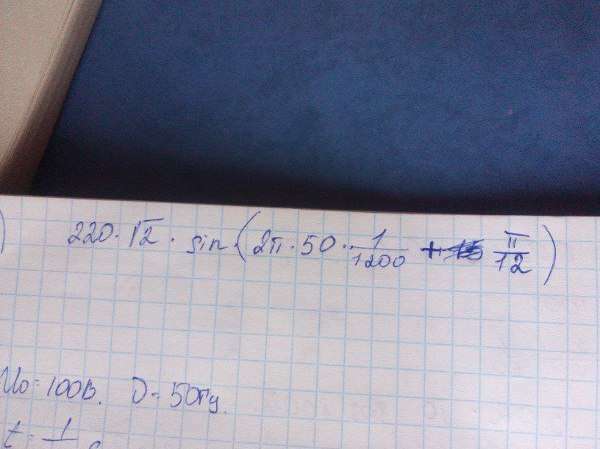 ) 220·√2 · sin·(2π·50·1/1200 + π/12)
U₀=100В. ν=50Гц.
t=1/